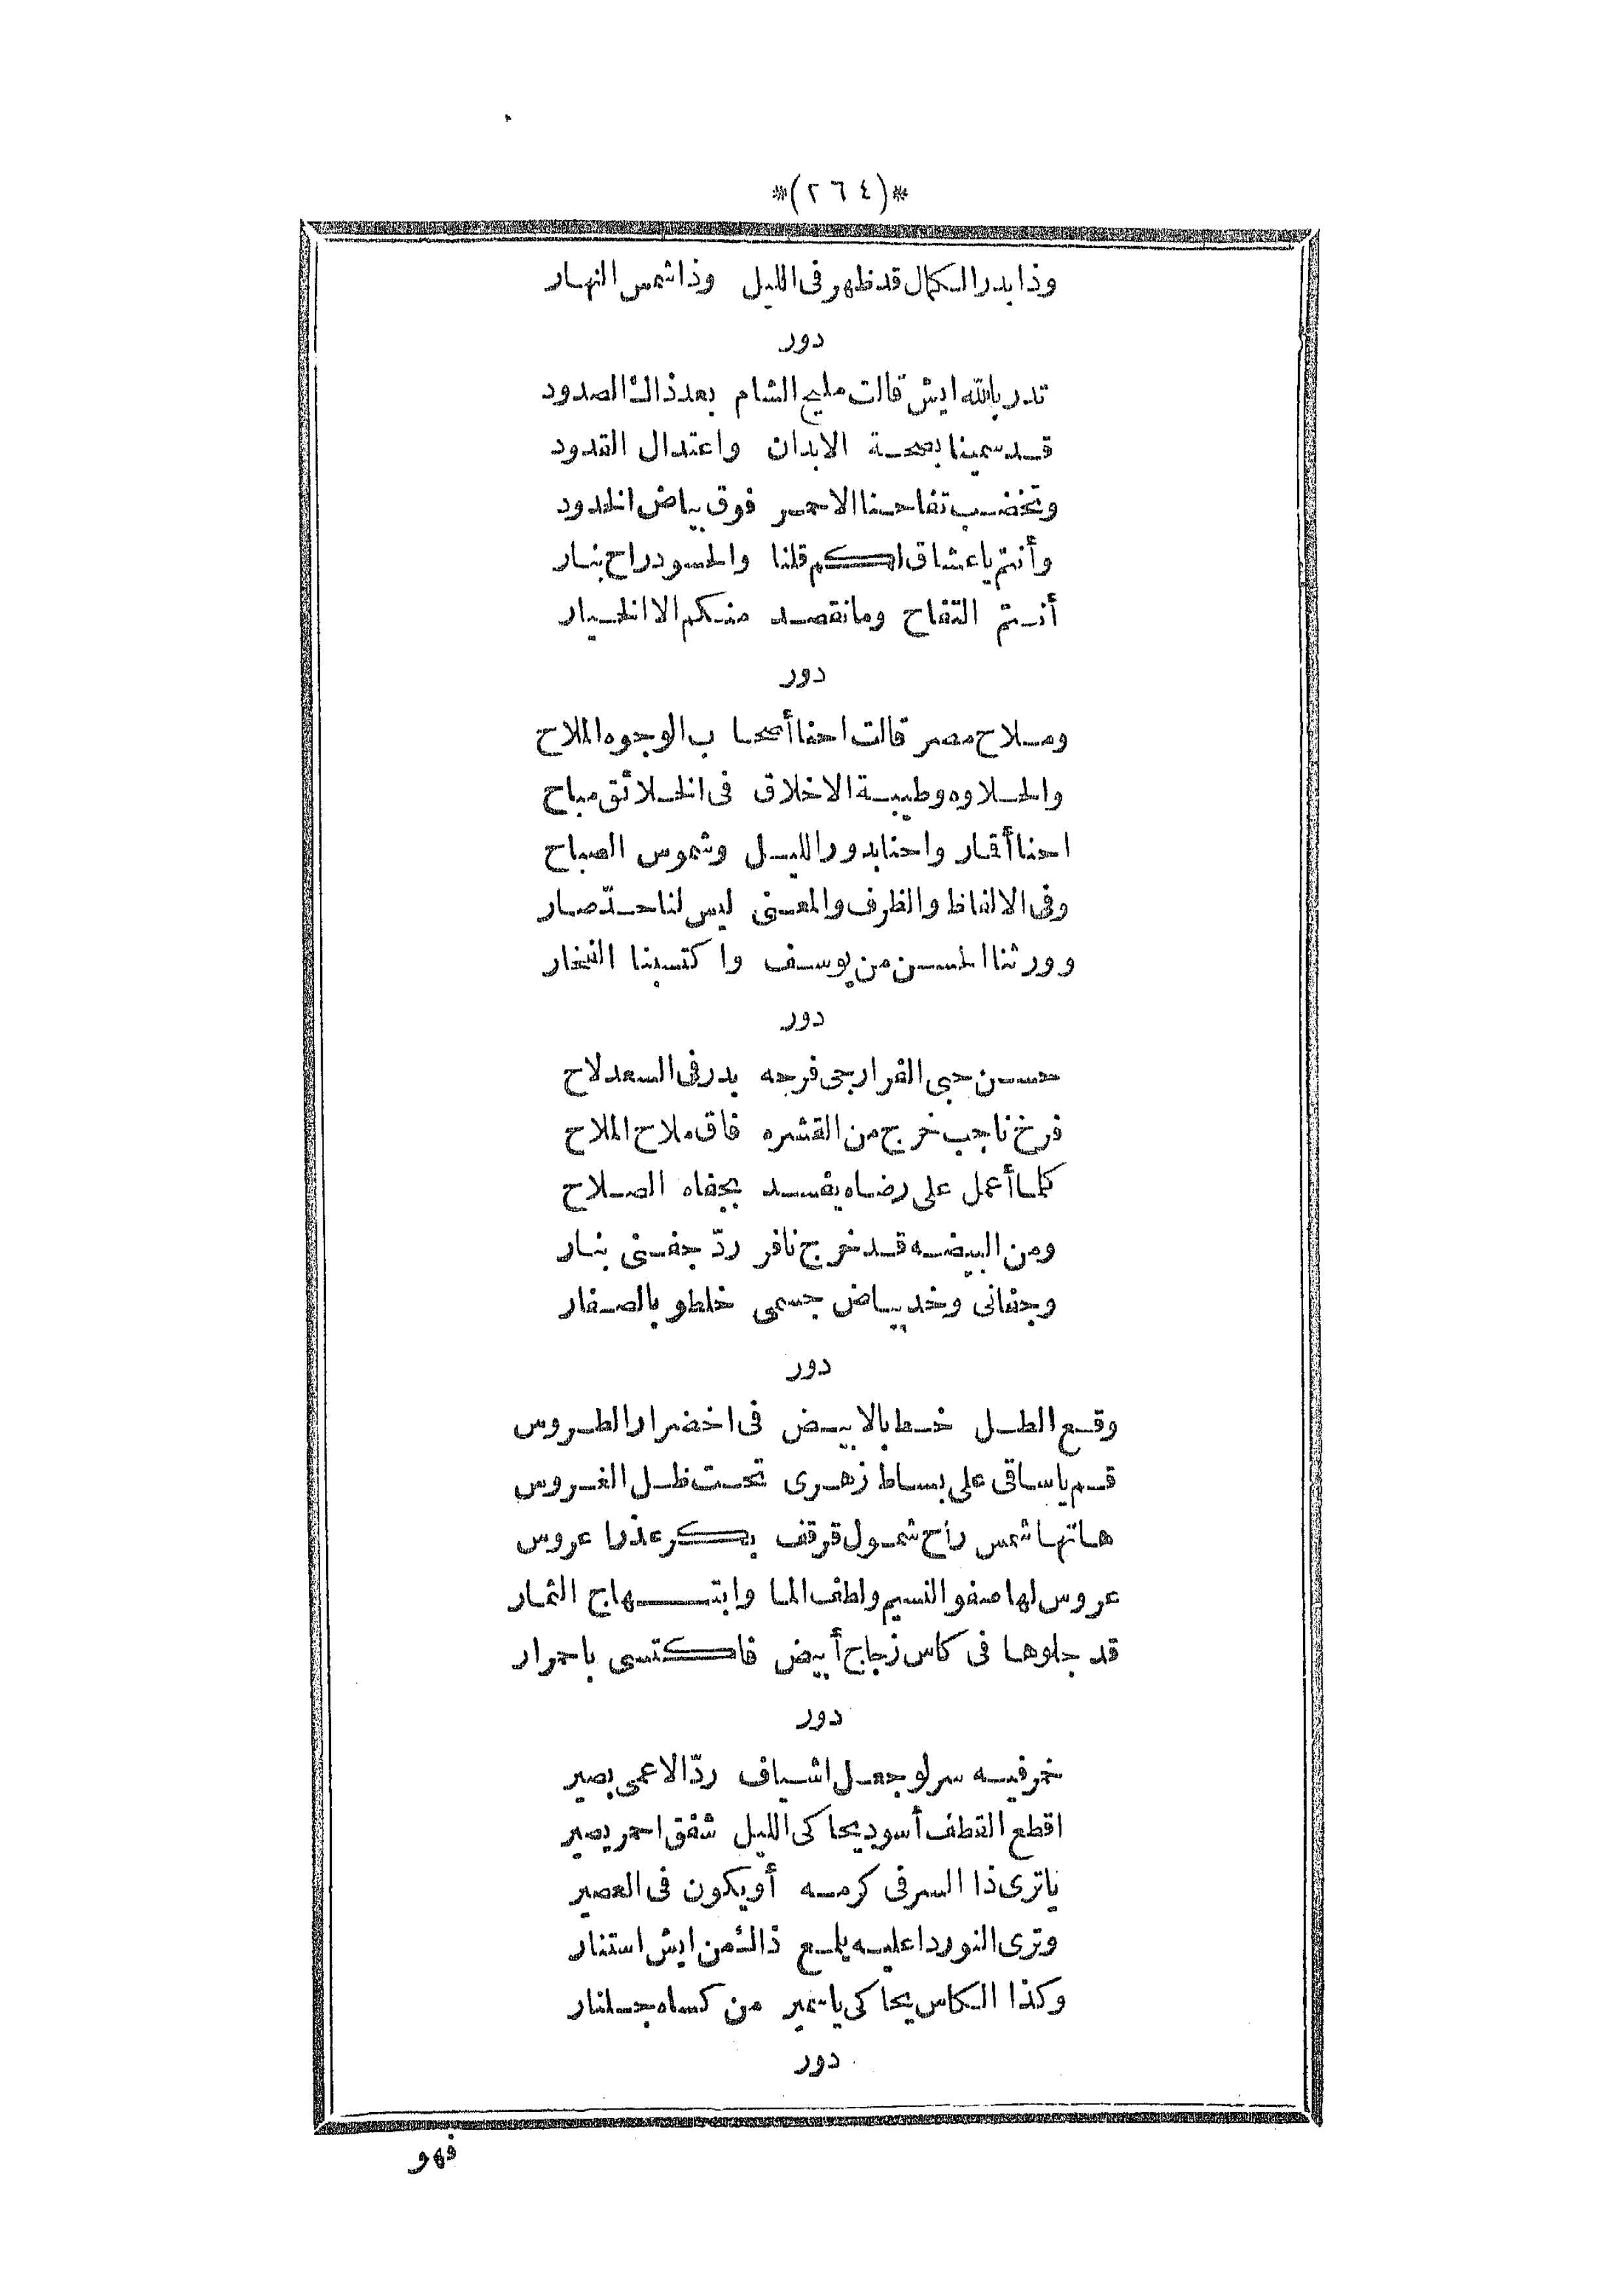 *(٢٦٤)*
وذا بدر الكمال قد ظهر فى الليل وذا شمس النهار
دور
تدر بالله ايش قالت مليح الشام بعد ذاك الصدود
قد سمينا بصحة الابدان واعتدال القدود
وتخضب تفاحنا الاحمر فوق بياض الخدود
وأنتم ياعشاق لكم قلنا والحسود راح بنار
أنتم التفاح ومانقصد منكم الا الخيار
دور
وملاح مصر قالت احنا أصحاب الوجوه الملاح
والحلاوه وطيبة الاخلاق فى الخلائق مباح
احنا أقمار واحنا بدور الليل وشموس الصباح
وفى الالفاظ والظرف والمعنى ليس لنا حدّ صار
وورثنا الحسن من يوسف واكتسبنا الفخار
دور
حسن حبى القرارجى فرجه بدر فى السعد لاح
فرخ ناجب خرج من القشره فاق ملاح الملاح
كلما أعمل على رضاه يفسد بجفاه الصلاح
ومن البيضه قد خرج نافر ردّ جفنى بنار
وجفانى وخد بياض جسمى خلطو بالصفار
دور
وقع الطل خط بالابيض فى اخضرار الطروس
قم ياساقى على بساط زهرى تحت ظل الغروس
هاتها شمس راح شمول قرقف بكر عذرا عروس
عروس لها صفو النسيم ولطف الما وابتهاج الثمار
قد جلوها فى كاس زجاج أبيض فاكتسى باحمرار
دور
خمر فيه سر لو جعل اشياف ردّ الاعمى بصير
اقطع القطف أسود يحاكى الليل شفق احمر يصير
ياترى ذا السر فى كرمه أو يكون فى العصير
وترى النور دا عليه يلمع ذاك من ايش استنار
وكذا الكاس يحاكى ياسمير من كساه جلنار
دور
فهو